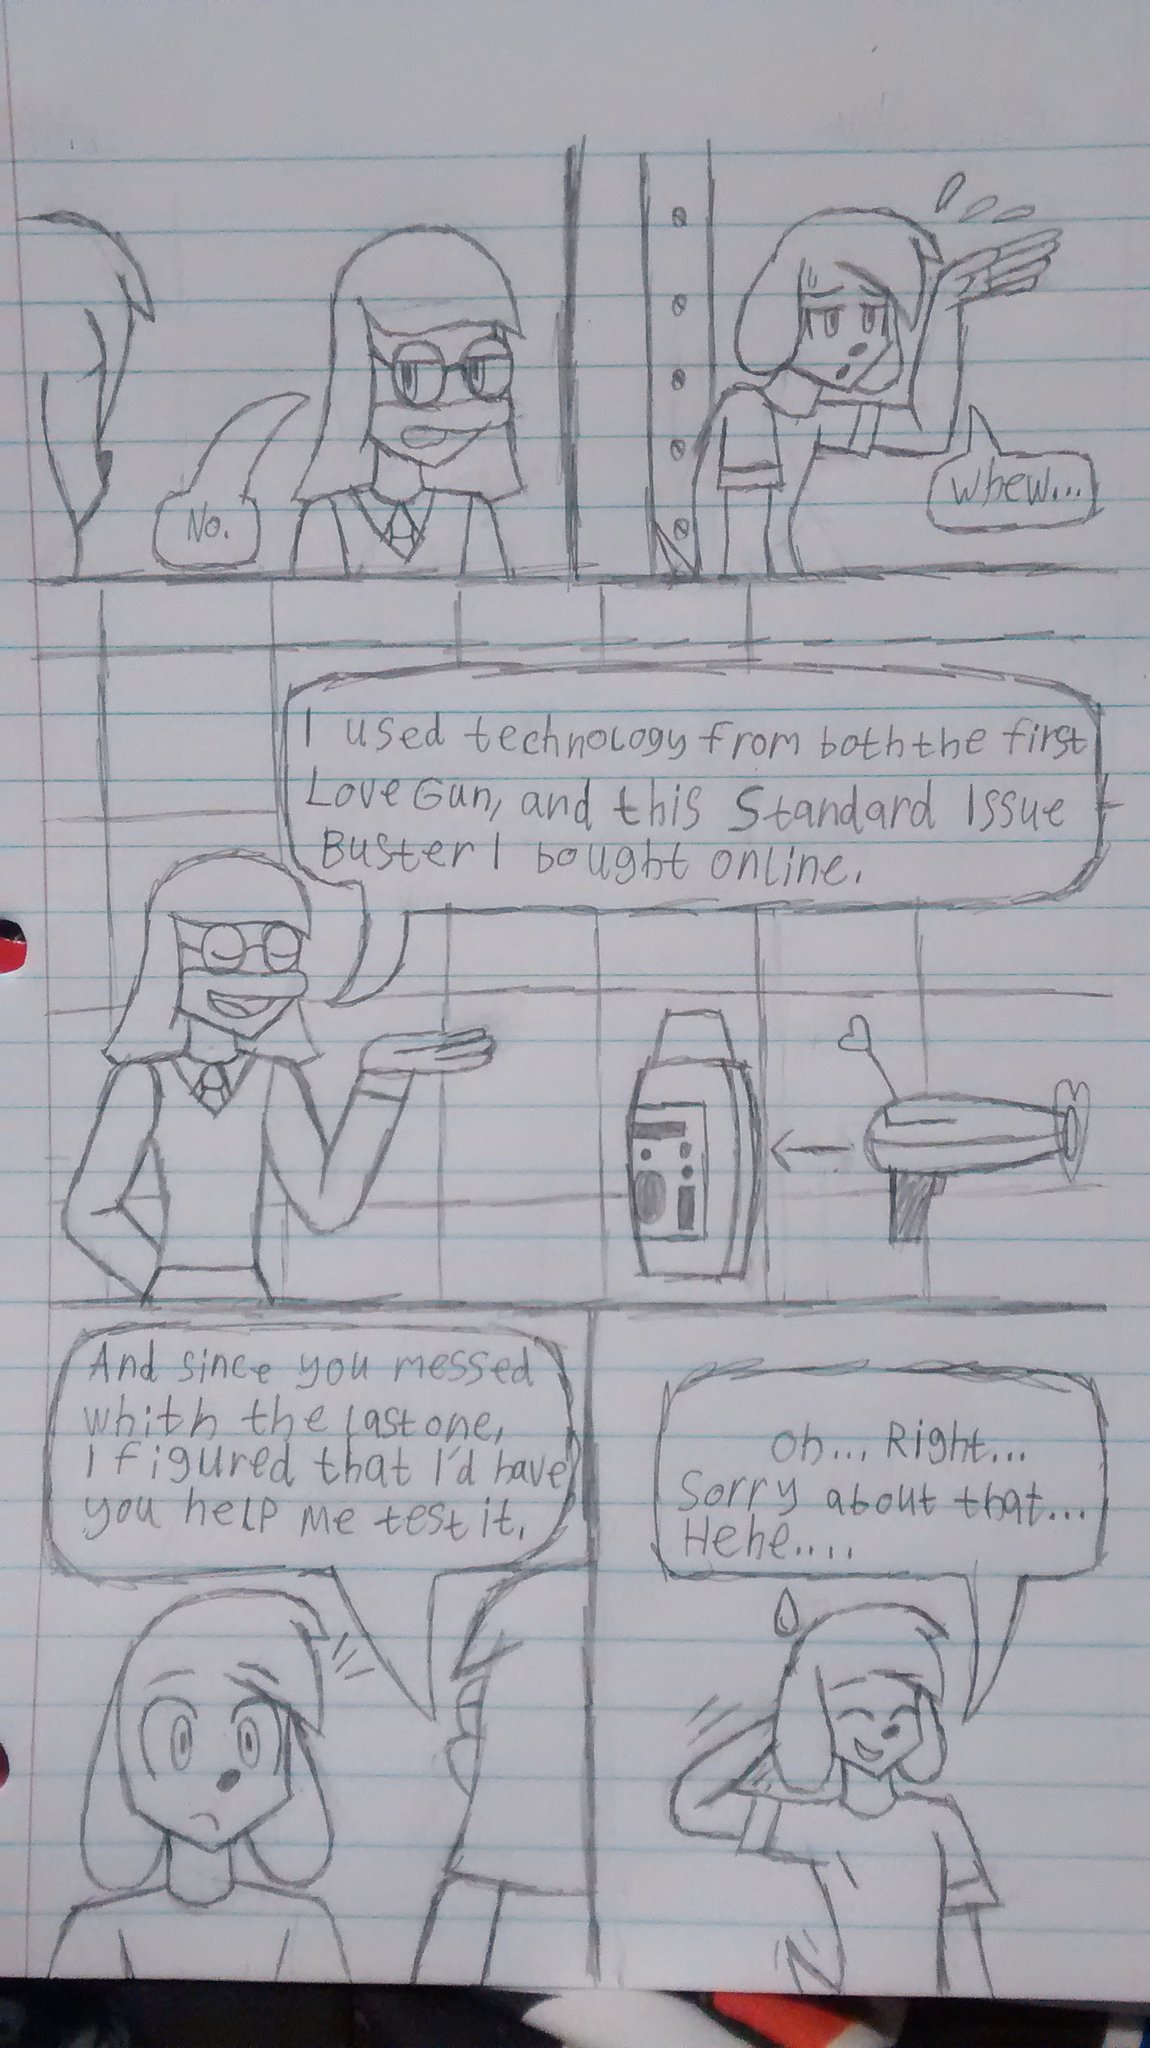 No.
Whew...
I used technology from both the first
Love Gun, and this Standard Issue
Buster I bought online.
And since you messed
whith the last one,
I figured that I'd have
you help me test it.
Oh... Right...
Sorry about that...
Hehe....